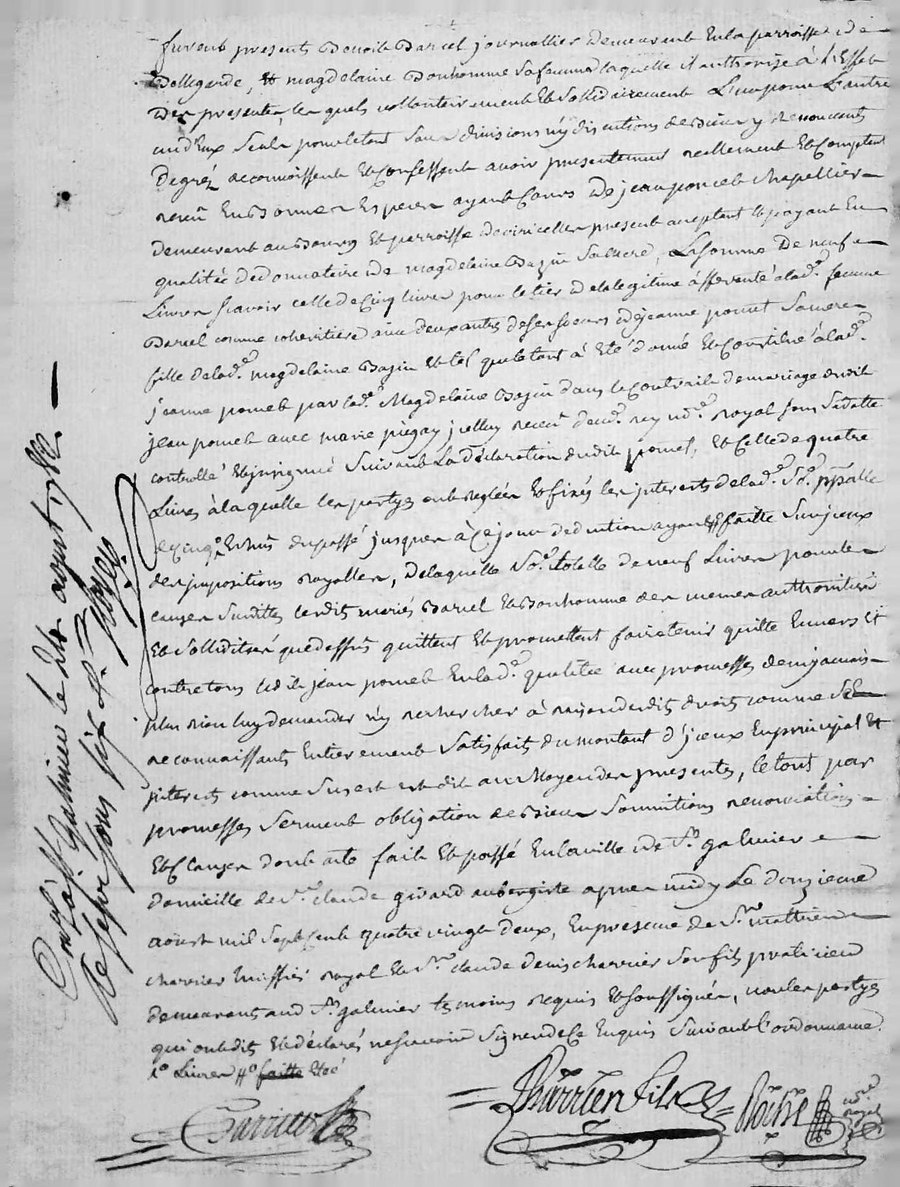 furent presents Benoit Barcel journallier demeurant en la parroisse de
Bellegarde, et magdelaine Bonhomme sa femme laquelle il authorise à l'effet
des presentes, les quels vollontairement et sollidairement l'un pour l'autre
un d'eux seul pour le tout sans divisions ny discutions de bien y renoncents
de gréz reconnoissent et confessent avoir presentement reellement et comptent
receu en bonnes especes ayant cours de jean poncet chapellier
demeurant au bourg et parroisse de viricelles present acceptant et payant en
qualité de donnataire de magdelaine Bazin sa mere, la somme de neuf
livres scavoir celle de cinq livres pour le tier de la legitime afferente à lad.e femme
Barcel comme coheritiere aux deux autres de ses soeurs de jeanne poncet sa mere
fille de lad.e magdelaine Bazin et tel que le tout à été donné et constitué à lad.e
jeanne poncet par lad.e Magdelaine Bazin dans le contrait de mariage dudit
jean poncet avec marie pregay icelluy receu dud. rey no.re royal sous sa datte
controllé et insinué suivant la déclaration dudit poncet, et celle de quatre
livres à laquelle les partyes ont reglée et fixés les interets de lad.e So.e ppalle
de cinq # echus du passé jusques à ce jour deduction ayant été faitte sur jceux
des jmpositions royalles, de laquelle So.e totalle de neuf livres pour les
causes susdittes lesdits mariés Barcel et Bonhomme de memes authorité
et solliditté que dessus quittent et promettent faire tenir quitte envers et
contre tous ledit jean poncet en lad.e qualité avec promesses de n'y jamais
plus rien luy demander ny rechercher à raison desdits droits comme se
reconnaissants entierement satisfaits du montant d'jceux en principal et
jnterets comme sus est est dit au moyen des presentes, le tout par
promesses serment obligation de bien soumitions renonciations
et clauses dont acte fait et passé en la ville de St. galmier
domicille de Sr. claude girard aubergiste apres midy le douzieme
aoust mil sept cent quatre vingt deux, en presence de Sr. matthieu
charrier huissier royal et Sr. claude denis charrier son fils praticien
demeurants aud. St. galmier temoins requis et soussignés, non les partyes
qui ont dit et déclarés ne scavoir signer de ce enquis suivant l'ordonnance.
1.o livres #o faitte été
Charrier
Charrier fils
no.re royal
Con.lé à St galmier le aoust 1782
Rc sept sous six d.